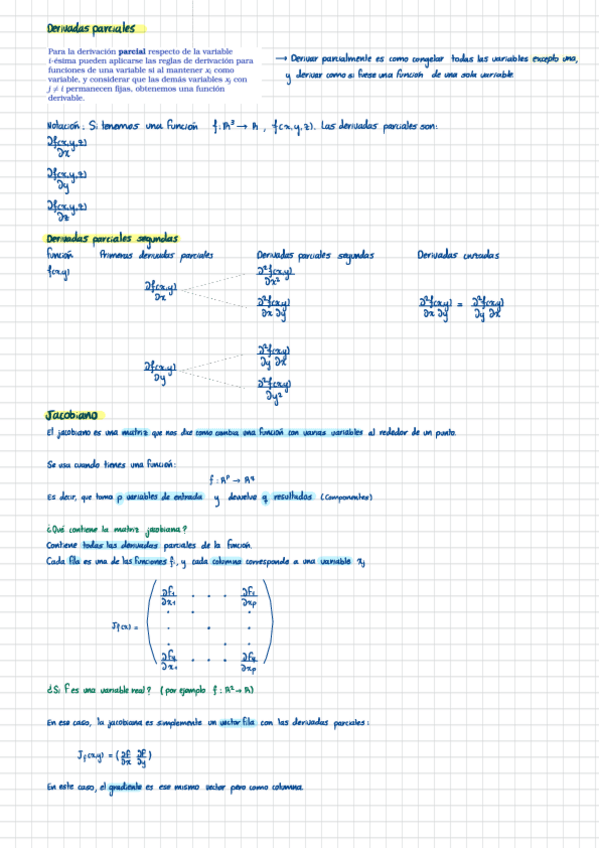 Derivadas parciales
Para la derivación parcial respecto de la variable
i-ésima pueden aplicarse las reglas de derivación para
funciones de una variable si al mantener xᵢ como
variable, y considerar que las demás variables xⱼ con
j ≠ i permanecen fijas, obtenemos una función
derivable.
→ Derivar parcialmente es como congelar todas las variables excepto una,
y derivar como si fuese una función de una sola variable
Notación: Si tenemos una función f: R³ → R, f(x,y,z). Las derivadas parciales son:
∂f(x,y,z)/∂x
∂f(x,y,z)/∂y
∂f(x,y,z)/∂z
Derivadas parciales segundas
Función Primeras derivadas parciales Derivadas parciales segundas Derivadas cruzadas
f(x,y)
∂f(x,y)/∂x
∂²f(x,y)/∂x²
∂²f(x,y)/∂x ∂y
∂²f(x,y)/∂x ∂y = ∂²f(x,y)/∂y ∂x
∂f(x,y)/∂y
∂²f(x,y)/∂y ∂x
∂²f(x,y)/∂y²
Jacobiano
El jacobiano es una matriz que nos dice como cambia una función con varias variables al rededor de un punto.
Se usa cuando tienes una función:
f: Rᵖ → R^q
Es decir, que toma p variables de entrada y devuelve q resultados (componentes)
¿Qué contiene la matriz jacobiana?
Contiene todas las derivadas parciales de la función.
Cada fila es una de las funciones fᵢ, y cada columna corresponde a una variable xⱼ
∂f₁/∂x₁ . . . ∂f₁/∂xₚ
. . .
Jf(x) = . . .
. . .
∂f_q/∂x₁ . . . ∂f_q/∂xₚ
¿Si F es una variable real? (por ejemplo f: R² → R)
En ese caso, la jacobiana es simplemente un vector fila con las derivadas parciales:
Jf(x,y) = (∂f/∂x ∂f/∂y)
En este caso, el gradiente es ese mismo vector pero como columna.